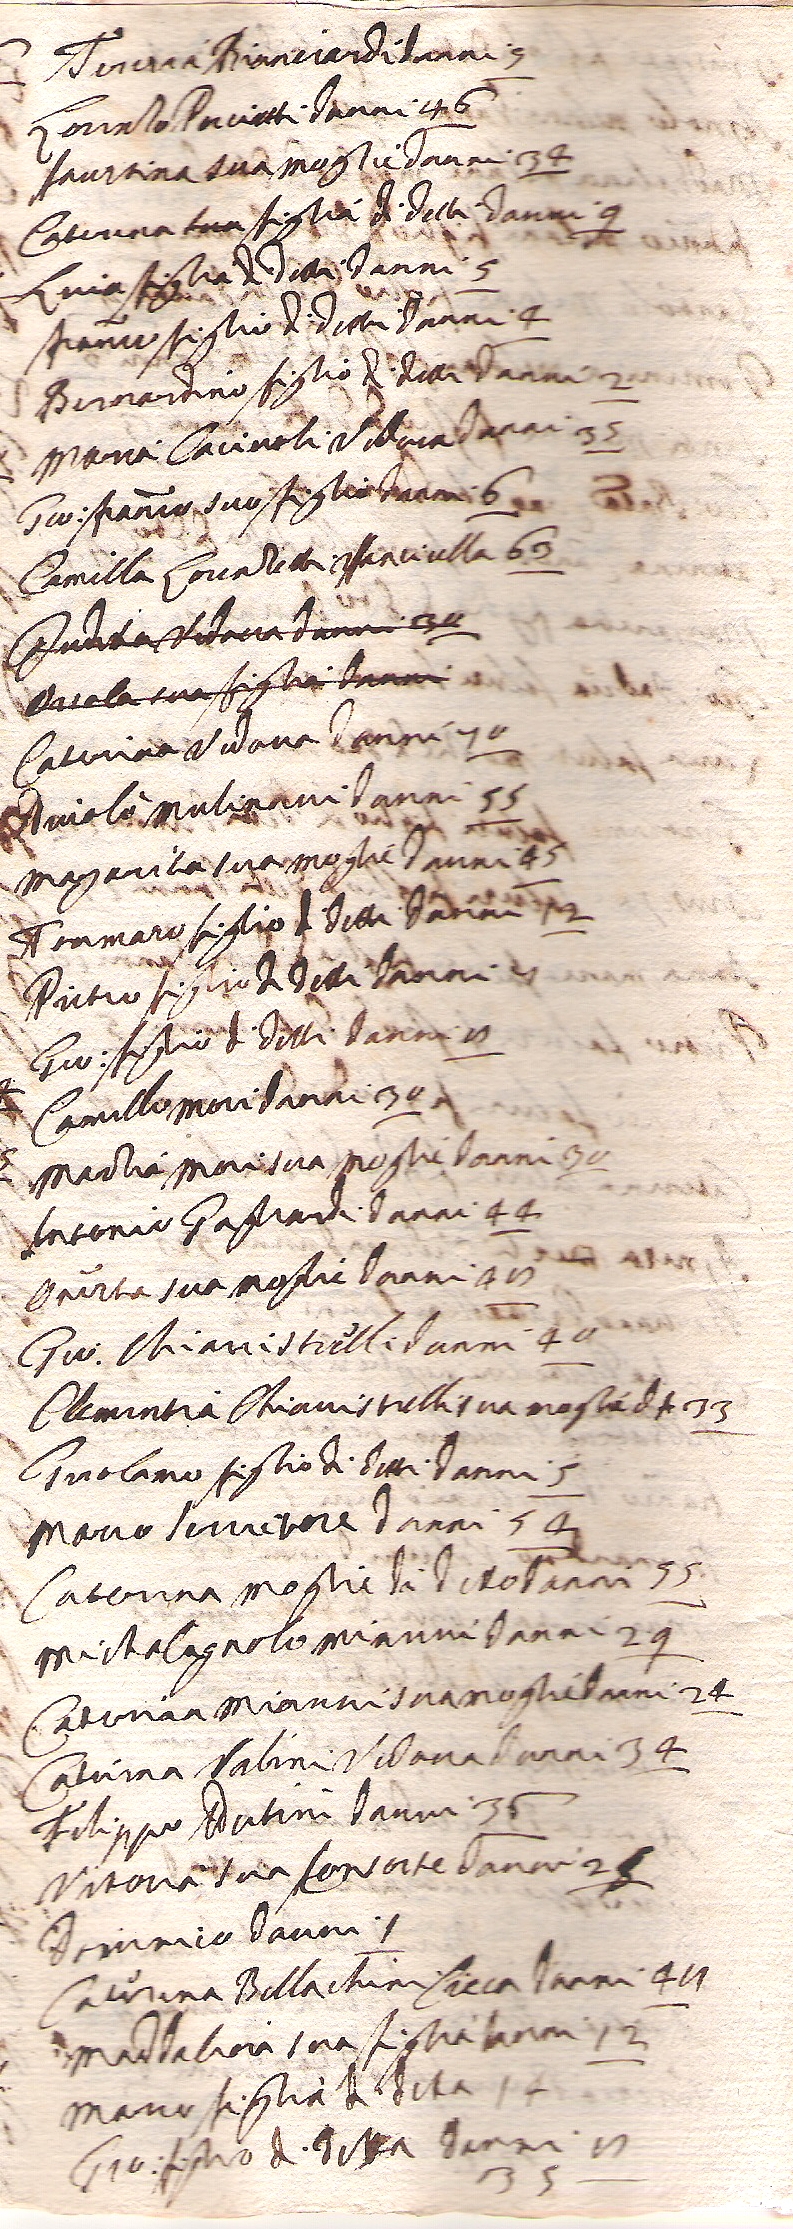 Teresia Bianciardi d'anni 5
Lorenzo Pucietti d'anni 46
faustina sua moglie d'anni 34
Caterina sua figlia di detti d'anni 9
Lucia figlia di detti d'anni 5
franco figlio di detti d'anni 4
Bernardino figlio di detti d'anni 2
Maria Vedova d'anni 35
Gio: franco suo figlio d'anni 6
Camilla Lorenzetti fanciulla 63
Vedova d'anni 30
Orsola sua figlia d'anni
Caterina Vedova d'anni 70
Molinari d'anni 55
Margarita sua moglie d'anni 45
Tommaso figlio di detti d'anni 12
Pietro figlio di detti d'anni
Gio: figlio di detti d'anni
Camillo Mori d'anni 30
Mattia Mori sua moglie d'anni 30
Antonio Gagliardi d'anni 44
Onesta sua moglie d'anni
Gio. Chiavistrelli d'anni 40
Clementia Chiavistrelli sua moglie d'A 33
Girolamo figlio di detti d'anni 5
Marco Servitore d'anni 54
Caterina moglie di detto d'anni 55
Michelagnolo Mianni d'anni 29
Caterina Mianni sua moglie d'anni 24
Caterina Valini Vedova d'anni 34
Filippo Butini d'anni 36
Vitoria sua Consorte d'anni
Domenico d'anni 1
Caterina Bellachini Cieca d'anni
Maddalena sua figlia d'anni 12
figlia di detta 14
Gio: figlio di detta d'anni
35